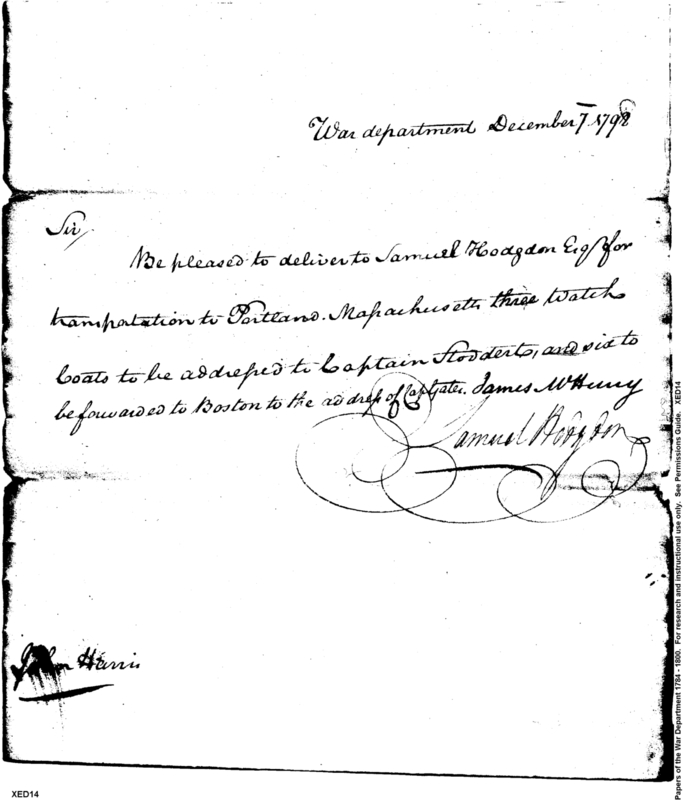 War department December 7 1798
Sir,
Be pleased to deliver to Samuel Hodgdon Esq for
transportation to Portland. Massachusetts three Watch
Coats to be addressed to Captain Stodderts, and six to
be forwarded to Boston to the address of Capt Gates. James McHenry
Samuel Hodgdon
John Harris
XED14
Papers of the War Department 1784 - 1800. For research and instructional use only. See Permissions Guide. XED14